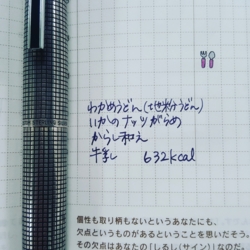 わかめうどん(地粉うどん)
いかのナッツがらめ
からし和え
牛乳 632kcal
個性も取り柄もないというあなたにも、
欠点というものがあるということを思いだそう。
その欠点はあなたの「しるし(サイン)」なのだ。